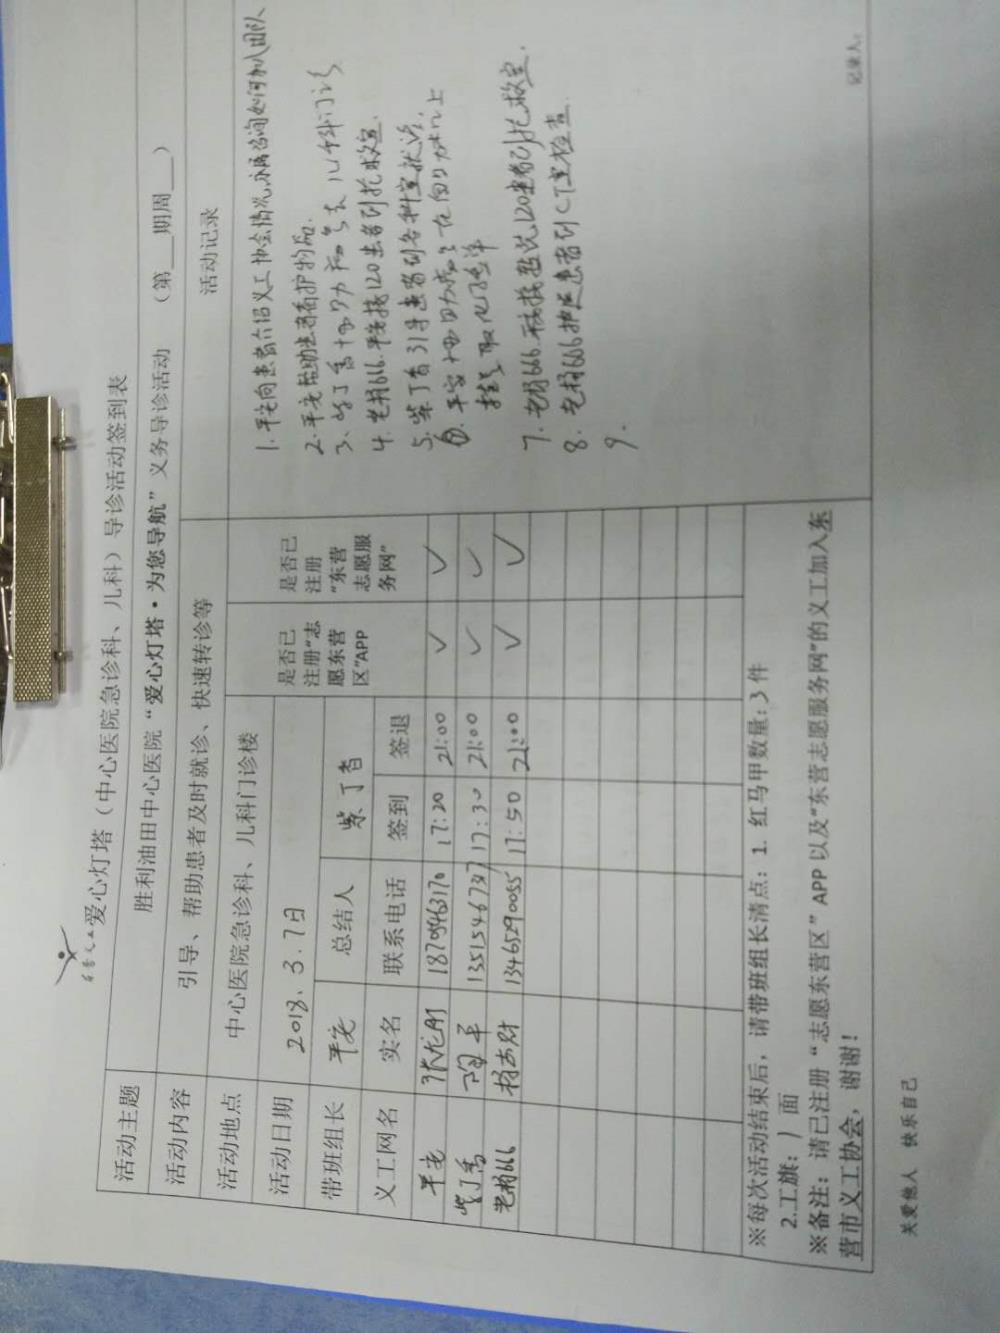 爱心灯塔（中心医院急诊科、儿科）导诊活动签到表
活动主题 胜利油田中心医院“爱心灯塔·为您导航”义务导诊活动 （第__期周__）
活动内容 引导、帮助患者及时就诊、快速转诊等 活动记录
活动地点 中心医院急诊科、儿科门诊楼
活动日期 2018.3.7日
带班组长 平安 总结人 紫丁香
义工网名 实名 联系电话 签到 签退 是否已注册“志愿东营区”APP 是否已注册“东营志愿服务网”
平安 18709463170 17:20 21:00 ✓ ✓
紫丁香 13515467377 17:30 21:00 ✓ ✓
老杨666 13465290055 17:50 21:00 ✓ ✓
1.平安向患者介绍义工协会情况,
2.平安帮助患者看护物品.
3、紫丁香协助 去儿科门诊
4.老杨666.平安接120患者到抢救室.
5.紫丁香引导患者到各科室就诊.
6.平安协助患者在自助机上
挂号取化验单
7.老杨666 120患者到抢救室.
8.老杨666护送患者到CT室检查.
9.
※每次活动结束后，请带班组长清点：1.红马甲数量:3件
2.工旗：1面
※备注：请已注册“志愿东营区”APP以及“东营志愿服务网”的义工加入东
营市义工协会，谢谢！
记录人:
关爱他人 快乐自己